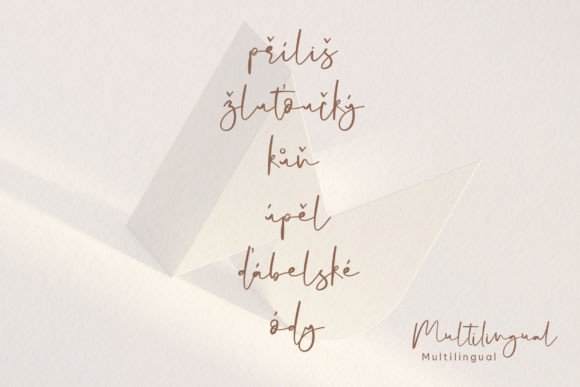 příliš
žluťoučký
kůň
úpěl
ďábelské
ódy
Multilingual
Multilingual